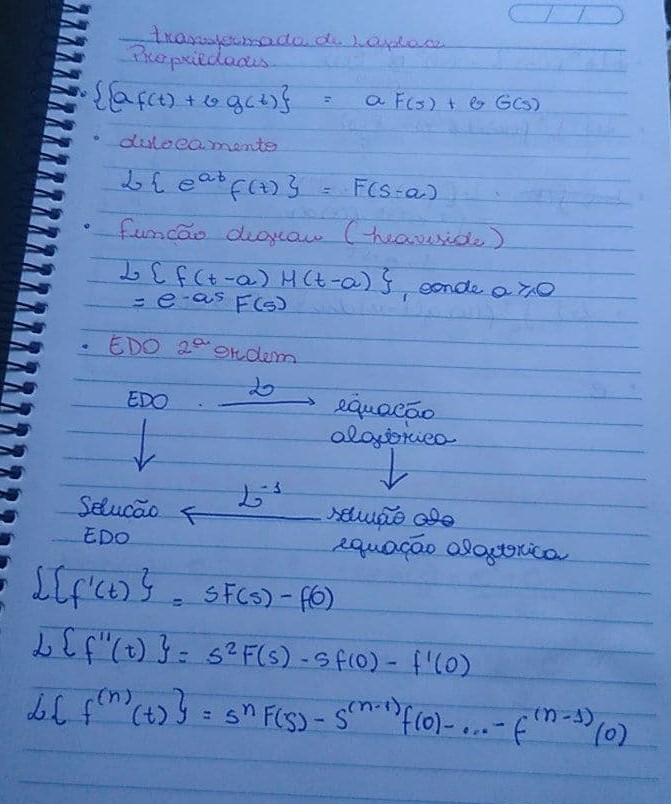 transformada de Laplace
Propriedades
• L{af(t) + b g(t)} = a F(s) + b G(s)
• deslocamento
L{ e^at f(t) } = F(s-a)
• função degrau (heaviside)
L{ f(t-a) H(t-a) }, onde a ≥ 0
= e^-as F(s)
• EDO 2ª ordem
EDO —L→ equação
algébrica
↓ ↓
Solução ←L^-1— solução da
EDO equação algébrica
L{f'(t)} = sF(s) - f(0)
L{f''(t)} = s²F(s) - sf(0) - f'(0)
L{f^(n)(t)} = s^n F(s) - s^(n-1) f(0) - ... - f^(n-1)(0)